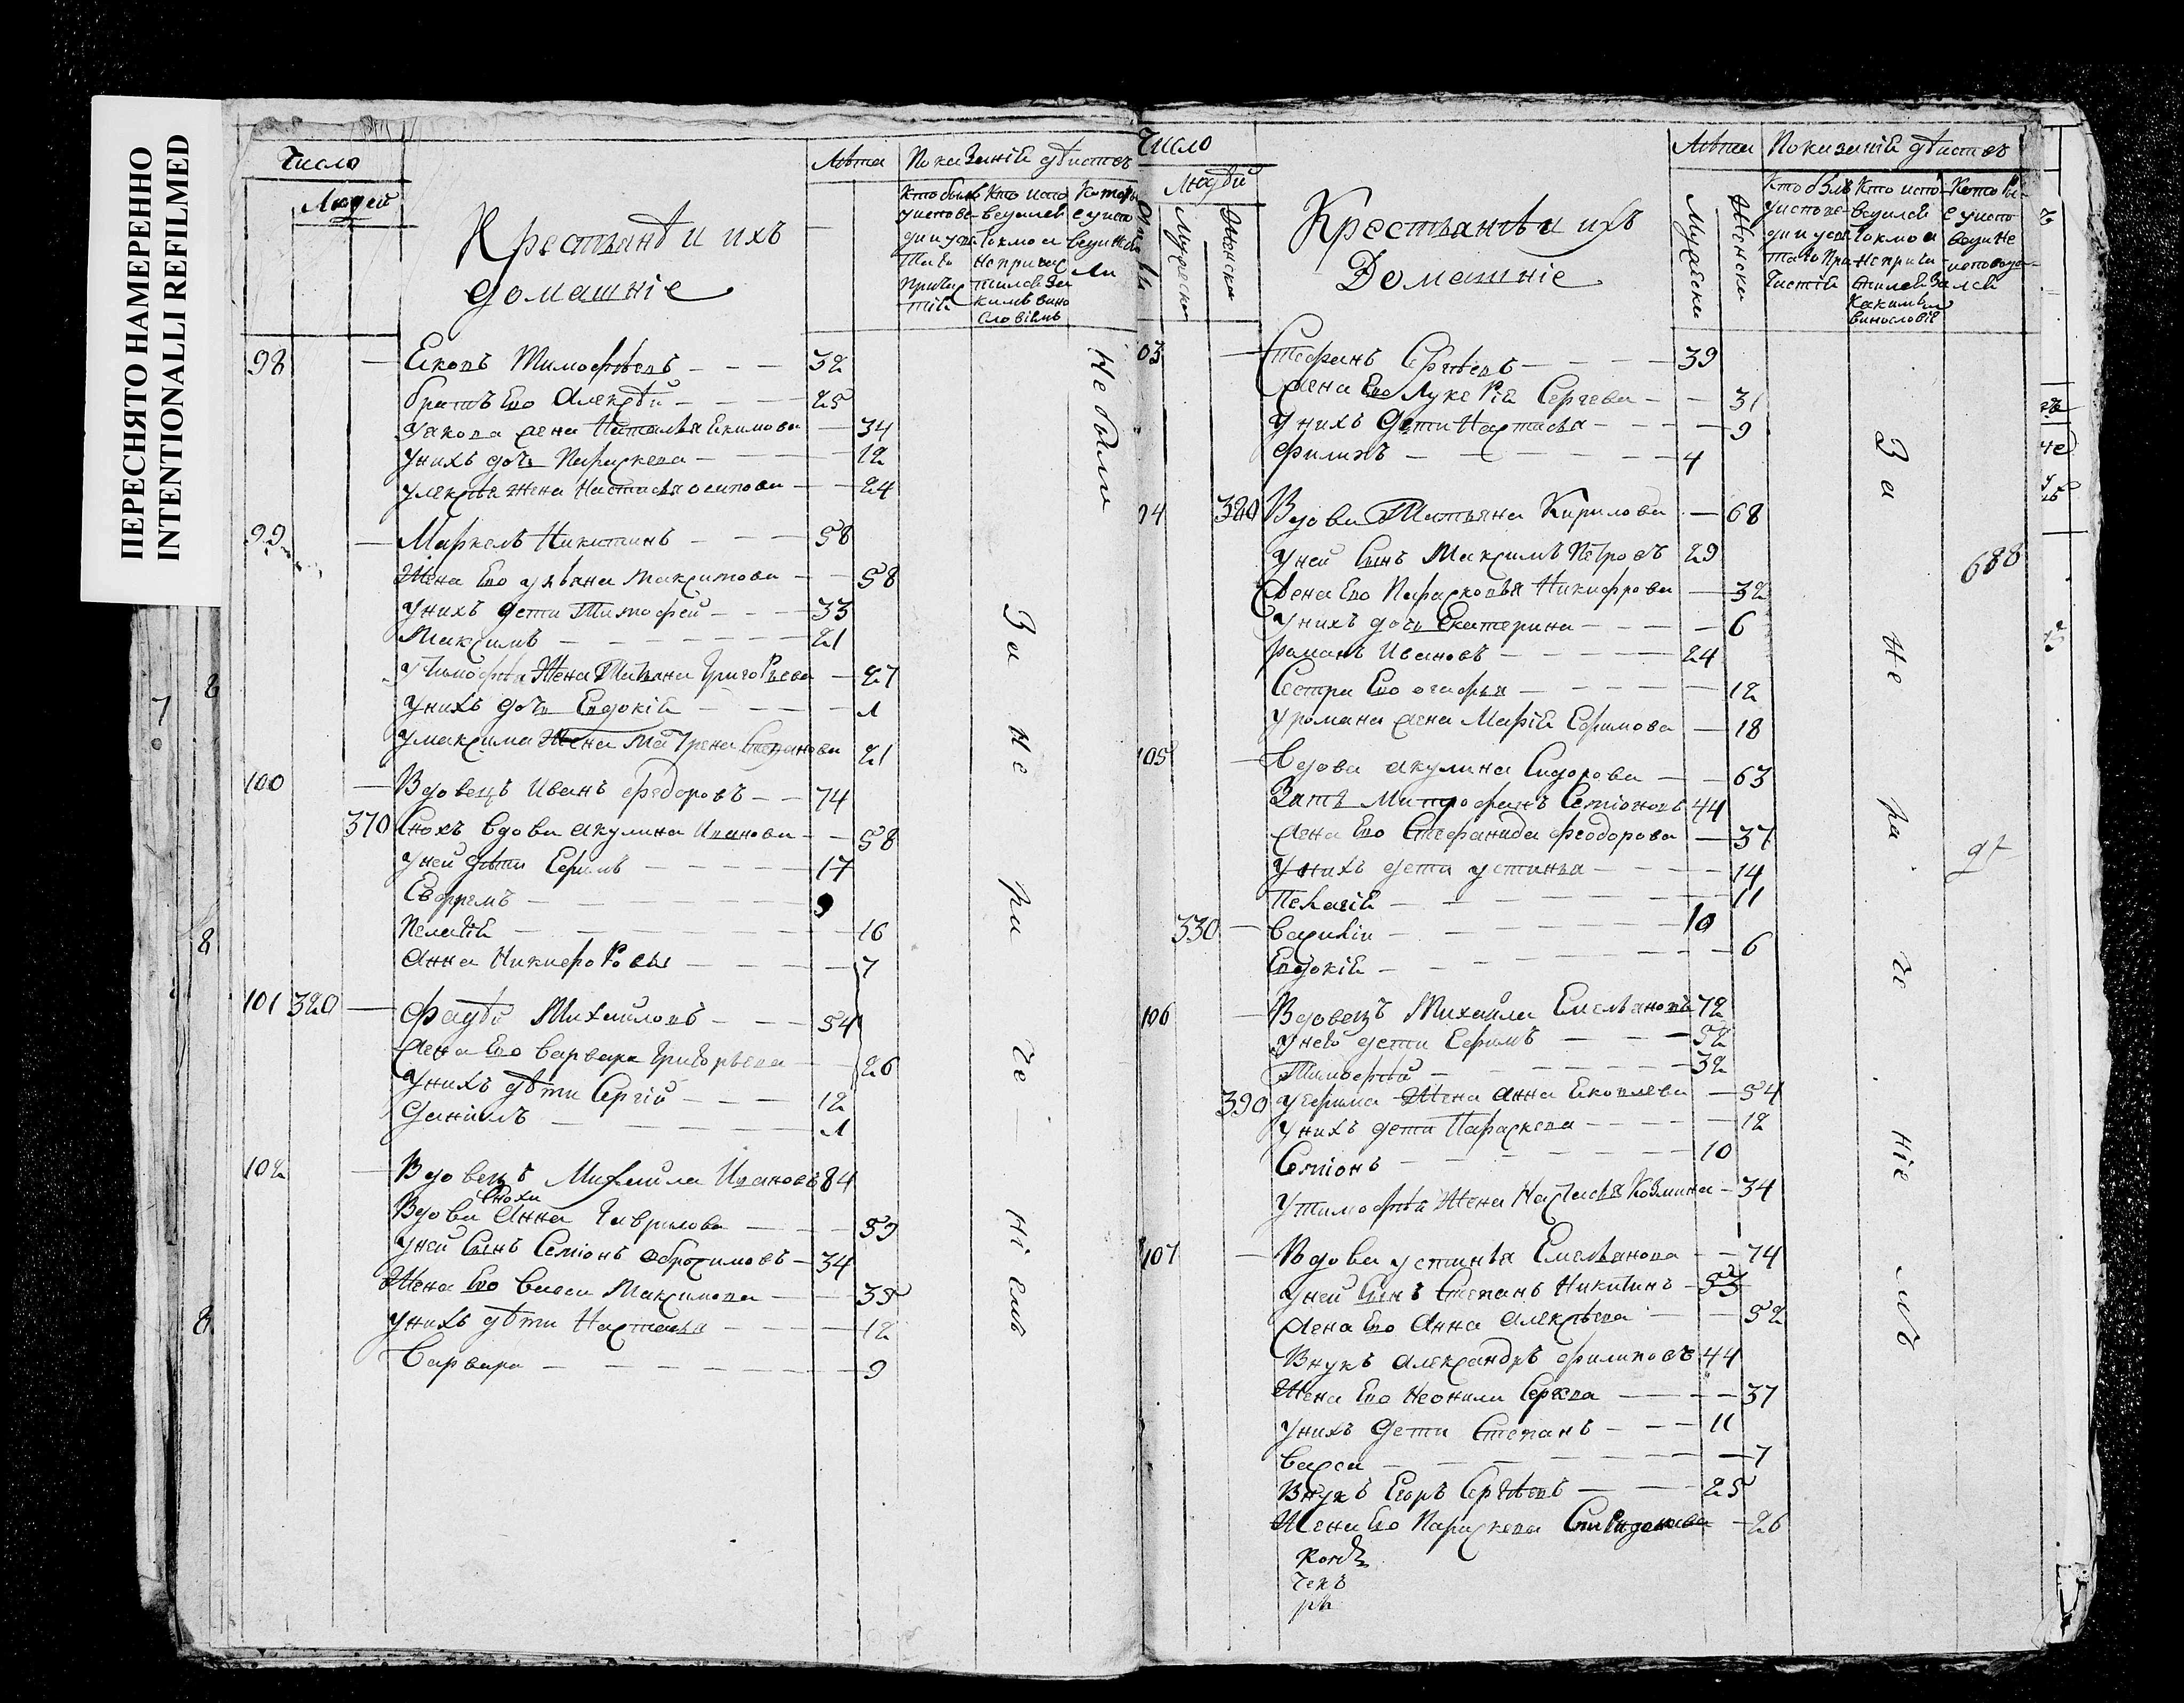 ПЕРЕСНЯТО НАМЕРЕННО
INTENTIONALLI REFILMED
Число
Людей
Крестьянѣ и ихъ
домашніе
Лѣта
Показаніѣ дѣиствъ
Кто былъ
у испове-
ди и у св.
таго
причас
тіѣ
Кто испо
ведался
токмо а
не причас
тился за
кимъ вино
словіемъ
98 — Ековъ Тимофѣевъ — — — 32
братъ Ево Алексѣй — — 25
у Якова жена Наталья Екимова — 34
у нихъ дочь Параскева — — 12
у Алексѣя жена Настасья Осипова — — 24
99 — Маркелъ Никитинъ — — — 58
Жена Ево ульяна Максимова — — 58
у нихъ дети Тимофей — — — 33
Максимъ — — — 21
у Тимофѣя Жена Татьяна Григорьева — 27
у нихъ дочь Евдокіѣ — — — 1
у максима Жена Матрена Степинова 21
100 — Вдовецъ Иванъ Федоровъ — — 74
370 Снохъ вдова акулина Иванова — — 58
у ней дѣти Ефимъ — — — 17
Ефремъ — — — 9
Пелагіѣ — — — 16
Анна Никифоровы — — — 7
101 320 — Фадѣй Михаиловъ — — — 54
жена Ево Варвара Григорьева — 26
у нихъ дѣти Сергій — — — 12
Данилъ — — — 1
102 — Вдовецъ Михаила Ивановъ 84
Снохи
Вдова Анна Гаврилова — — — 59
у ней Сынъ Семіонъ Обросимовъ — 34
Жена Ево Васса Максимова — — — 35
у нихъ дѣти Настасья — — — 12
Варвара — — — 9
Не были
За не при че — ні емъ
Число
Людей
Мужеска
Женска
Крестьянѣ и ихъ
Домашніе
Лѣта
Мужеска
Женска
Показаніѣ дѣистъ
Кто былъ
у испове-
ди и у св.
таго При
частіѣ
Кто испо-
ведался
токмо а
не прича
стился за
какимъ
винословіе
03 — Стефанъ Сергѣевъ — — — 39
жена Ево Лукеріѣ Сергева — — 31
у нихъ дети Настасья — — — 9
Филипъ — — — 4
04 320 Вдова Татьяна Кирилова — 68
у ней Сынъ Максимъ Петровъ 29
жена Ево Парасковья Никифрова — 32
у нихъ дочь Екатерина — — — 6
романъ Ивановъ — — — 24
Сестра Ево огафья — — — 12
у романа жена Маріѣ Ефимова — 18
105 — Вдова акулина Сидорова — — 63
Зать Митрофанъ Семіоновъ 44
жена Ево Стефанида Феодорова — 37
у нихъ дети устинья — — — 14
Пелагіѣ — — — 11
330 — Василіи — — — 10
Евдокіѣ — — — 6
106 — Вдовецъ Михаила Емельяновъ 72
у нево дети Ефимъ — — — 52
Тимофѣй — — — 32
390 у Ефима Жена Анна Ековлева — 54
у нихъ дети Параскева — — — 12
Семіонъ — — — 10
у тимофѣя Жена Настасья Козмина — 34
107 — Вдова устинья Емельянова — — 74
у ней Сынъ Степанъ Никитинъ — 53
жена Ево Анна Алексѣева — — 52
Внукъ Александръ Филиповъ 44
Жена Ево Неонила Сергева — — 37
у нихъ дети Степанъ — — — 11
Васса — — — 7
Внукъ Егоръ Сергѣевъ — — — 25
Жена Ево Параскева Спиридонова — 26
За не при че ніе мъ
688